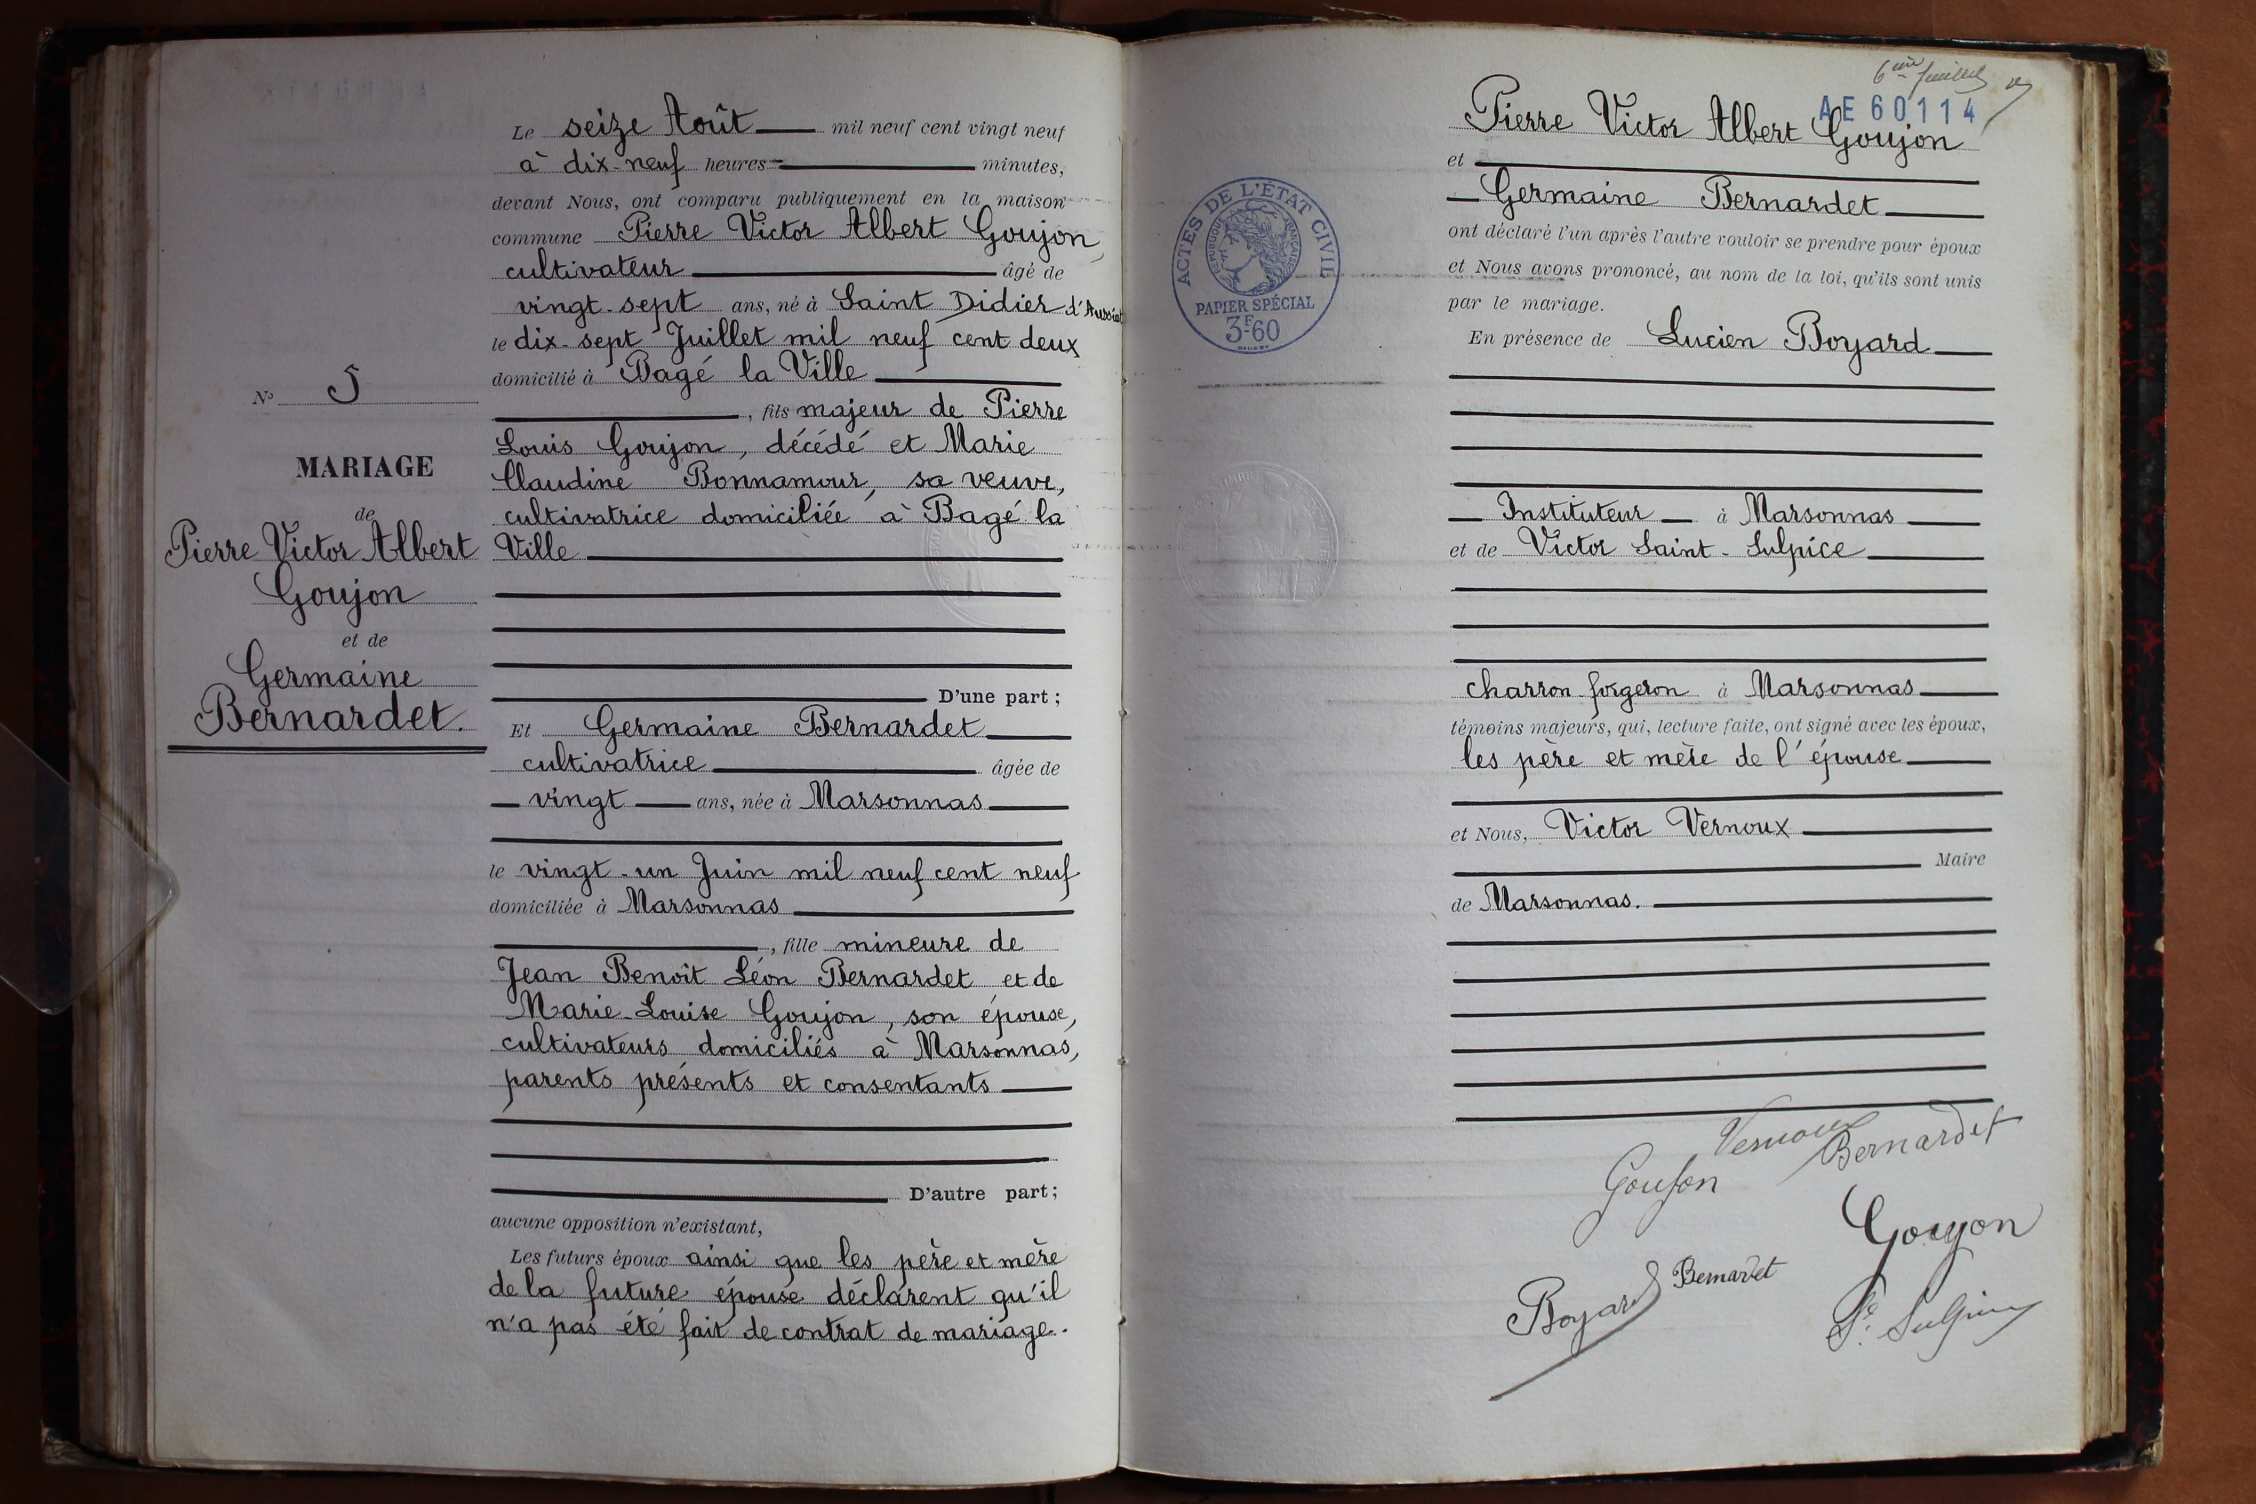 N° 5
MARIAGE
de
Pierre Victor Albert
Goujon
et de
Germaine
Bernardet.
Le seize Août mil neuf cent vingt neuf
à dix-neuf heures minutes,
devant Nous, ont comparu publiquement en la maison
commune Pierre Victor Albert Goujon,
cultivateur âgé de
vingt-sept ans, né à Saint Didier d'Aussiat
le dix-sept Juillet mil neuf cent deux
domicilié à Bagé la Ville
, fils majeur de Pierre
Louis Goujon, décédé et Marie
Claudine Bonnamour, sa veuve,
cultivatrice domiciliée à Bagé la
Ville
D'une part;
Et Germaine Bernardet
cultivatrice âgée de
vingt ans, née à Marsonnas
le vingt-un Juin mil neuf cent neuf
domiciliée à Marsonnas
, fille mineure de
Jean Benoît Léon Bernardet et de
Marie-Louise Goujon, son épouse,
cultivateurs domiciliés à Marsonnas,
parents présents et consentants
D'autre part;
aucune opposition n'existant,
Les futurs époux ainsi que les père et mère
de la future épouse déclarent qu'il
n'a pas été fait de contrat de mariage.
6ème feuillet
AE 60114
Pierre Victor Albert Goujon
et
Germaine Bernardet
ont déclaré l'un après l'autre vouloir se prendre pour époux
et Nous avons prononcé, au nom de la loi, qu'ils sont unis
par le mariage.
En présence de Lucien Boyard
Instituteur à Marsonnas
et de Victor Saint-Sulpice
charron-forgeron à Marsonnas
témoins majeurs, qui, lecture faite, ont signé avec les époux,
les père et mère de l'épouse
et Nous, Victor Vernoux
Maire
de Marsonnas.
ACTES DE L'ÉTAT CIVIL
RÉPUBLIQUE FRANÇAISE
PAPIER SPÉCIAL
3F60
Vernoux
Bernardet
Goujon
Goujon
Bernardet
Boyard
St. Sulpice